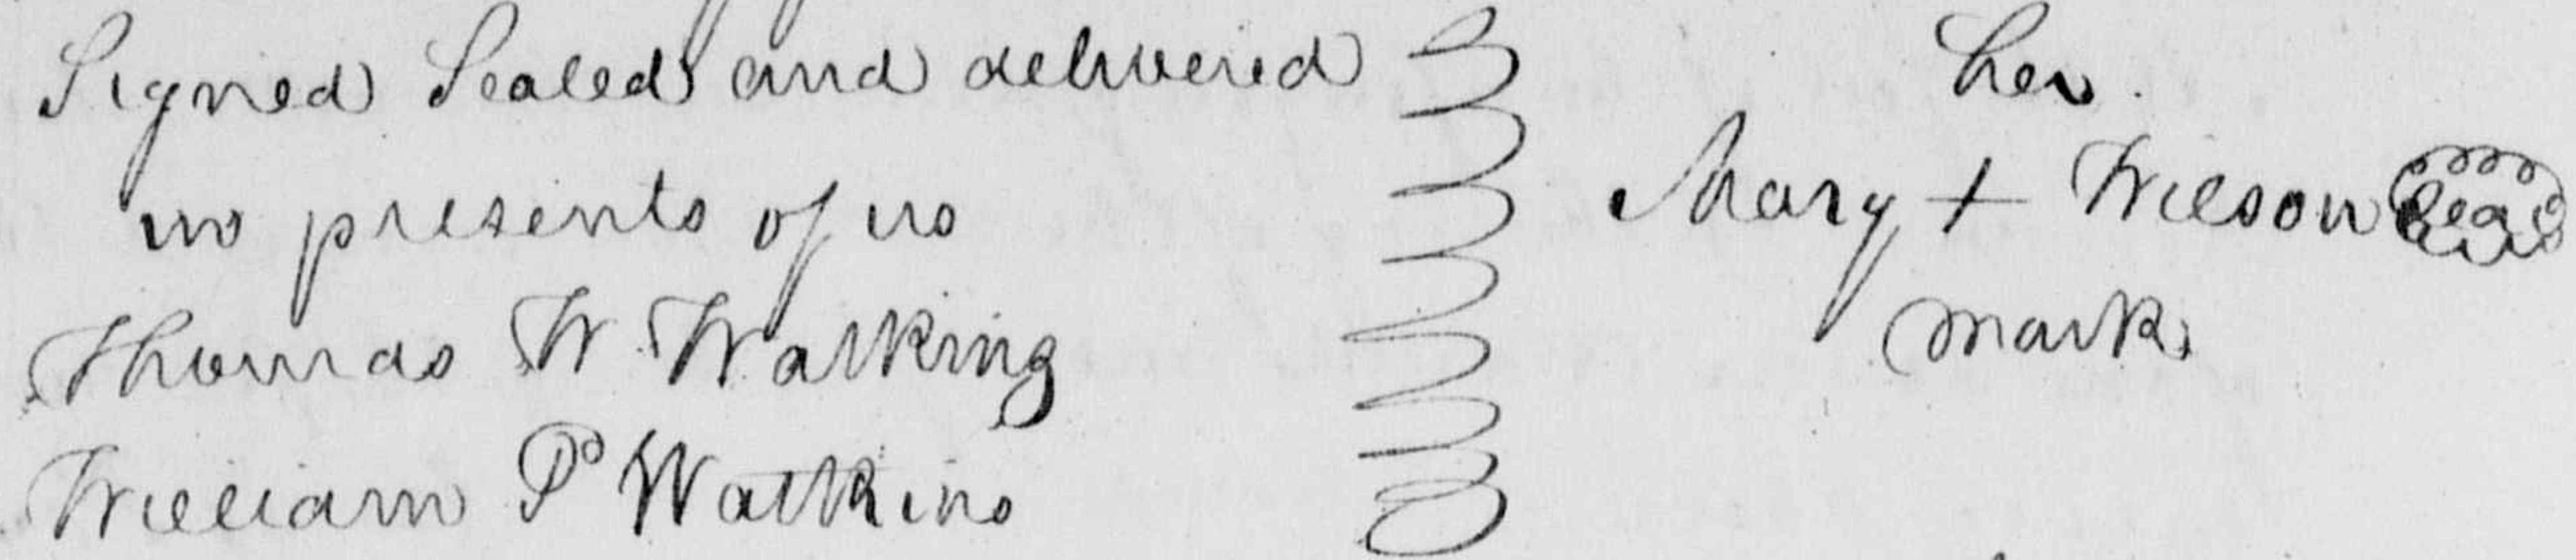 Signed Sealed and delivered
in presents of us
Thomas W Watking
William P Watkins
her
Mary + Wilson Seal
mark